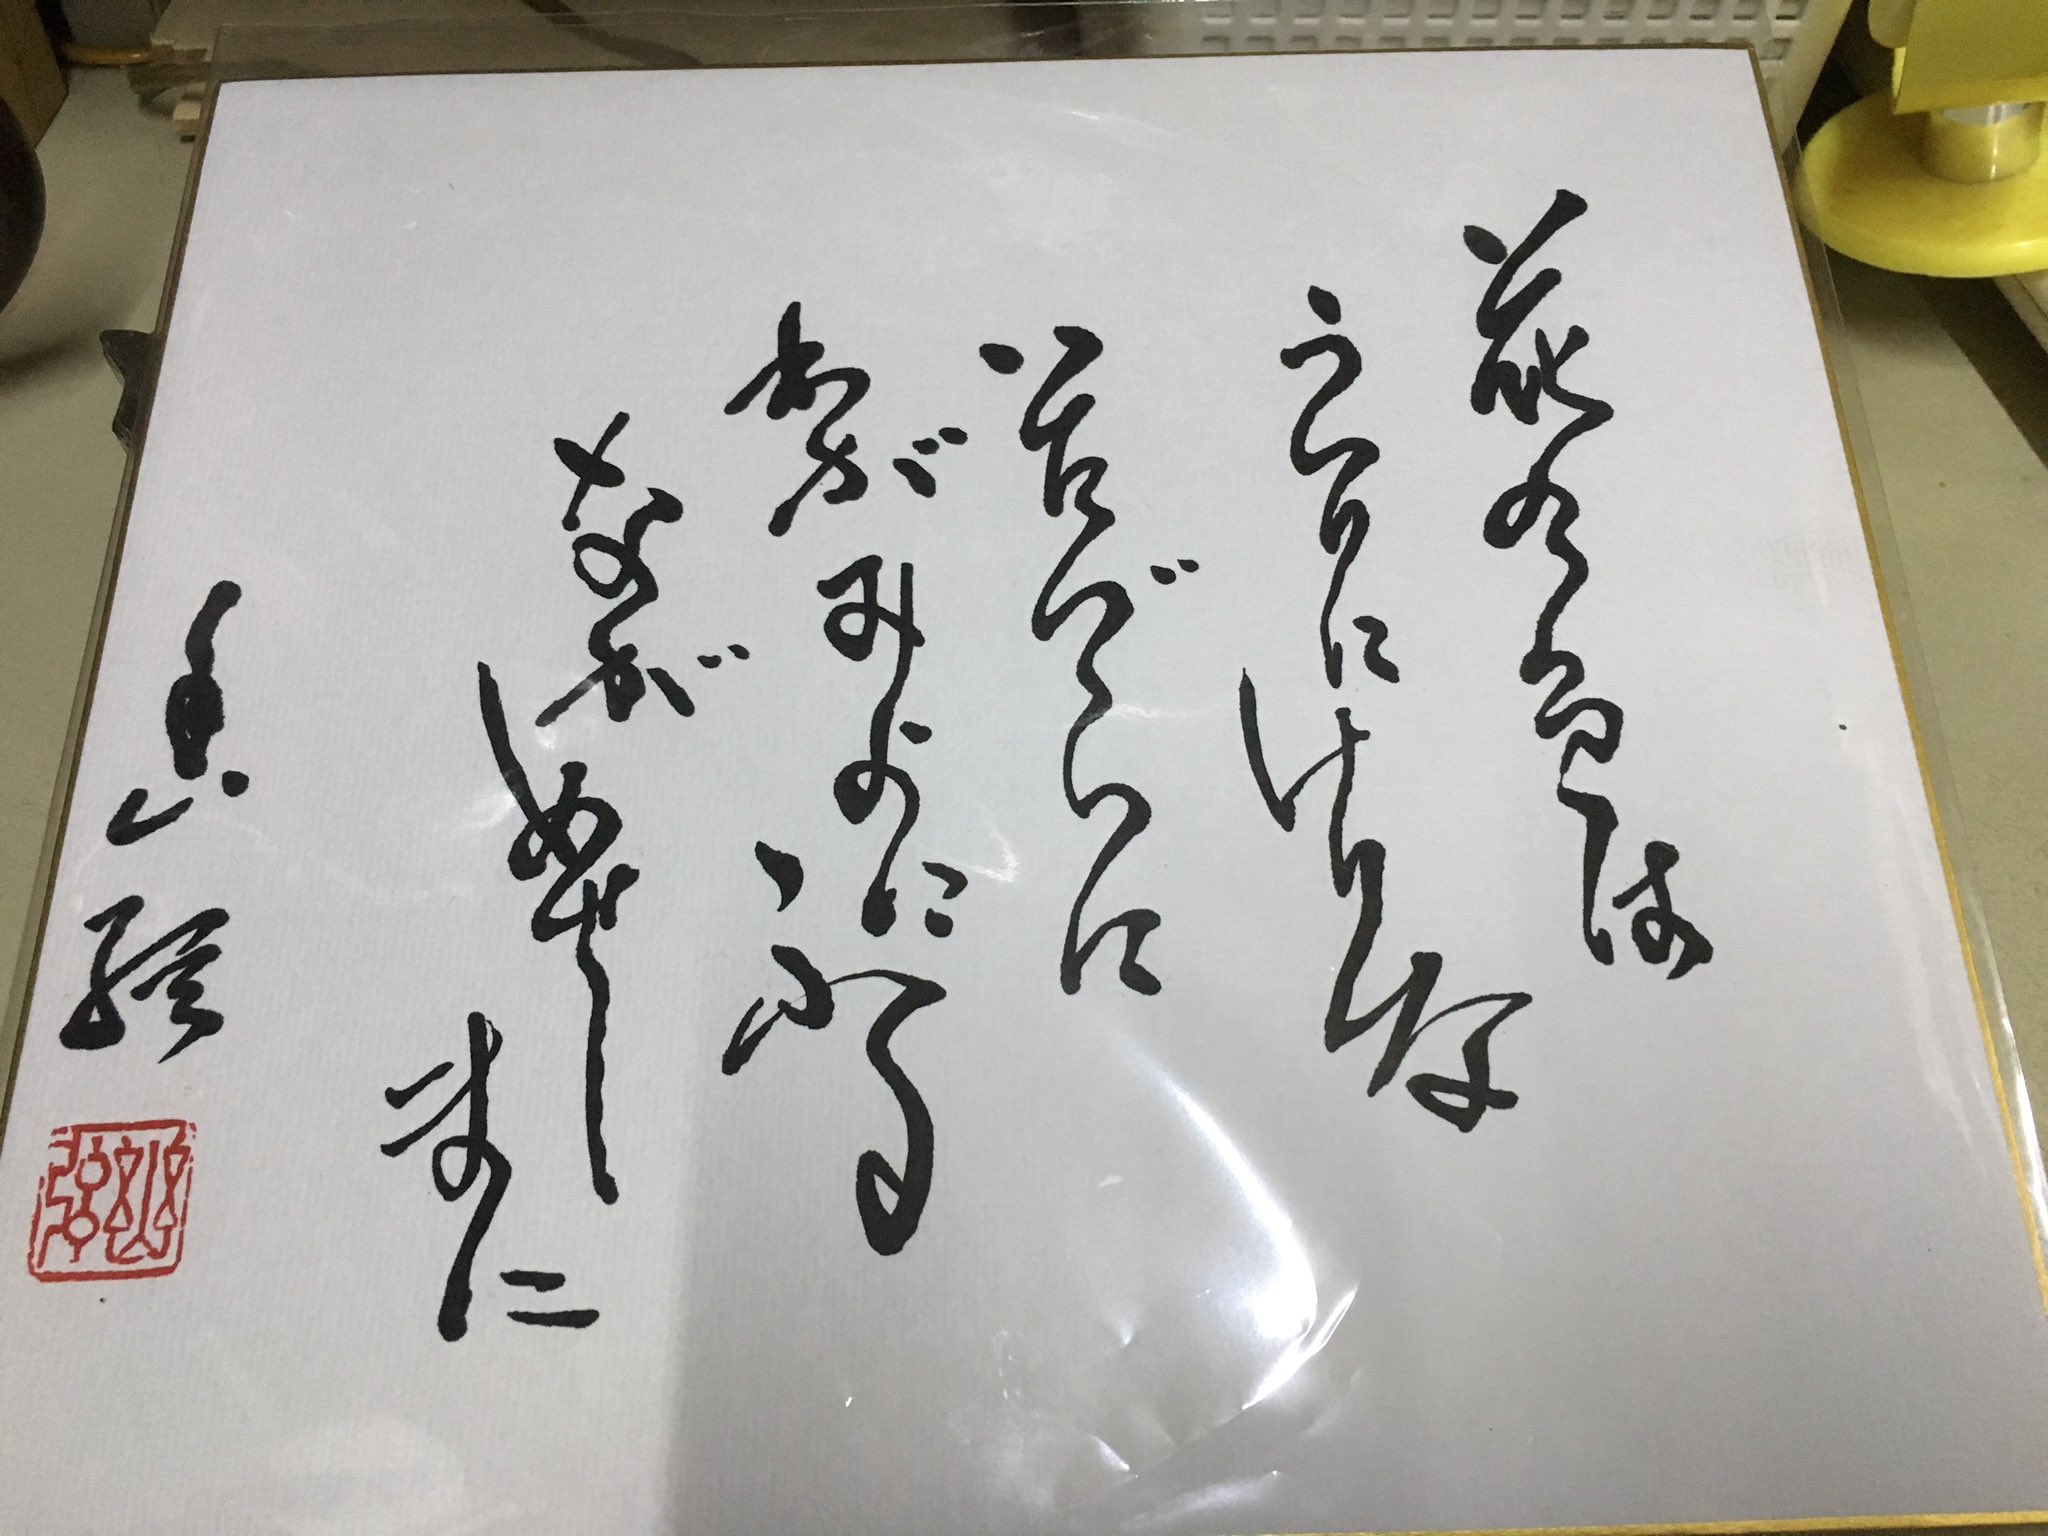 花の色は
うつりにけりな
いたづらに
わがみよにふる
ながめせしまに